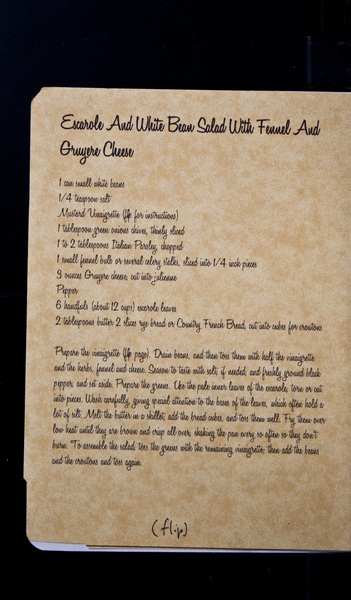 Escarole And White Bean Salad With Fennel And
Gruyere Cheese
1 can small white beans
1/4 teaspoon salt
Mustard Vinaigrette (flip for instructions)
1 tablespoon green onions chives, thinly sliced
1 to 2 tablespoons Italian Parsley, chopped
1 small fennel bulb or several celery stalks, sliced into 1/4 inch pieces
3 ounces Gruyere cheese, cut into julienne
Pepper
6 handfuls (about 12 cups) escarole leaves
2 tablespoons butter 2 slices rye bread or Country French Bread, cut into cubes for croutons
Prepare the vinaigrette (flip page). Drain beans, and then toss them with half the vinaigrette
and the herbs, fennel and cheese. Season to taste with salt, if needed, and freshly ground black
pepper, and set aside. Prepare the greens. Use the pale inner leaves of the escarole, torn or cut
into pieces. Wash carefully, giving special attention to the bases of the leaves, which often hold a
lot of silt. Melt the butter in a skillet, add the bread cubes, and toss them well. Fry them over
low heat until they are brown and crisp all over, shaking the pan every so often so they don't
burn. To assemble the salad, toss the greens with the remaining vinaigrette; then add the beans
and the croutons and toss again.
(flip)